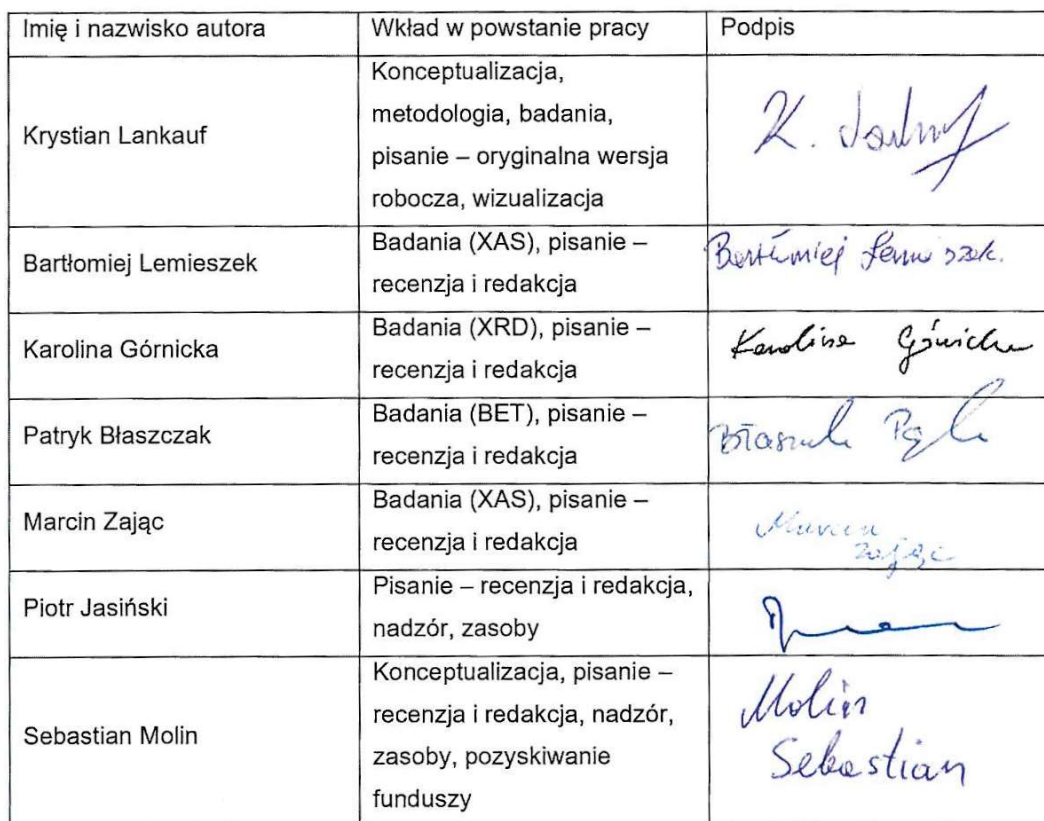 Imię i nazwisko autora
Wkład w powstanie pracy
Podpis
Krystian Lankauf
Konceptualizacja,
metodologia, badania,
pisanie – oryginalna wersja
robocza, wizualizacja
K.
Bartłomiej Lemieszek
Badania (XAS), pisanie –
recenzja i redakcja
Bartłomiej Lemieszek.
Karolina Górnicka
Badania (XRD), pisanie –
recenzja i redakcja
Karolina Górnicka
Patryk Błaszczak
Badania (BET), pisanie –
recenzja i redakcja
Marcin Zając
Badania (XAS), pisanie –
recenzja i redakcja
Marcin
Zając
Piotr Jasiński
Pisanie – recenzja i redakcja,
nadzór, zasoby
Sebastian Molin
Konceptualizacja, pisanie –
recenzja i redakcja, nadzór,
zasoby, pozyskiwanie
funduszy
Molin
Sebastian